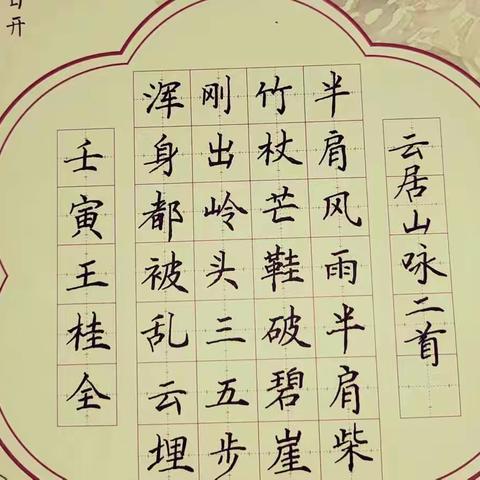 云居山咏二首
半肩风雨半肩柴
竹杖芒鞋破碧崖
刚出岭头三五步
浑身都被乱云埋
壬寅王桂全